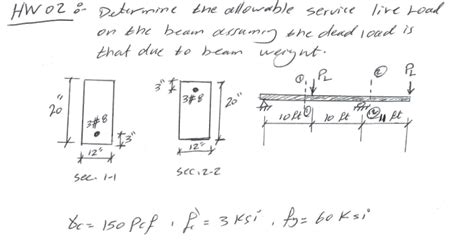 HW 02 :- Determine the allowable service live load
on the beam assuming the dead load is
that due to beam weight.
20"
3#8
3"
12"
sec. 1-1
3"
3#8
20"
12"
sec. 2-2
PL
PL
10 ft
10 ft
4 ft
γc = 150 Pcf , fc' = 3 Ksi , fy = 60 Ksi